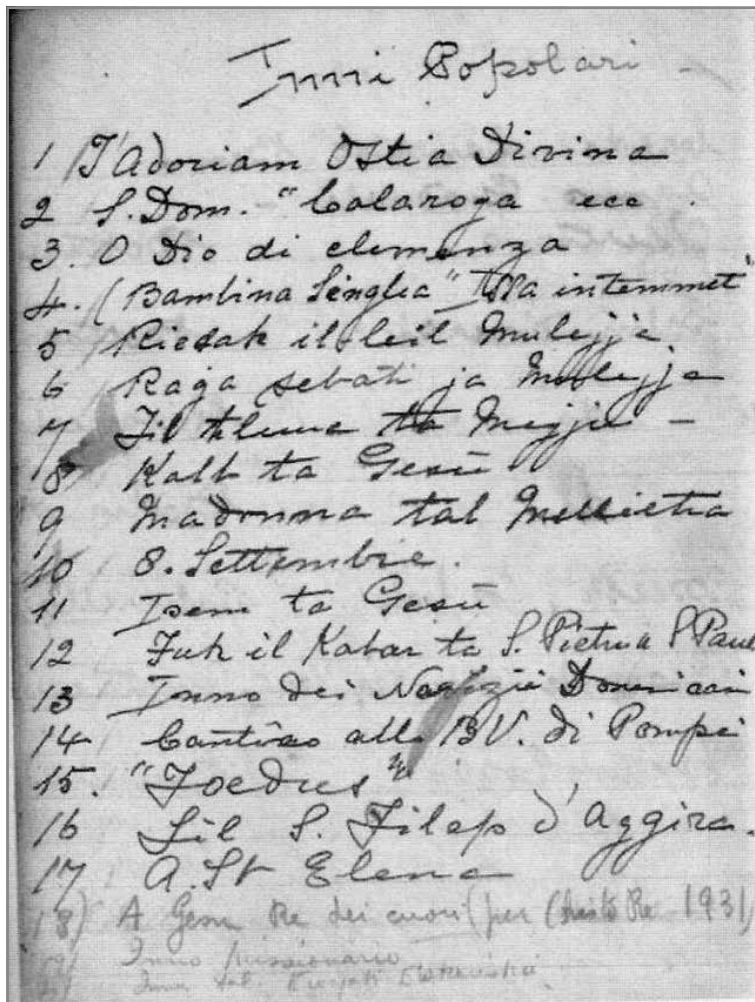 Inni Popolari -
1 T'Adoriam Ostia Divina
2 S. Dom. "Calaroga ecc.
3. O Dio di clemenza
4. (Bambina Senglea "Illa intemmet"
5 Riedak il leil Mulejja
6 Raga sebati ja Mulejja
7 Fil tluwa ta Mejju -
8 Kalb ta Gesù
9 Madonna tal Mellieha
10 8. Settembre.
11 Isem ta Gesù
12 Fuk il Kabar ta S. Pietru S Paul
13 Inno dei Novizii Domenicani
14 Cantico alla BV. di Pompei
15. "Foedus"
16 Lil S. Filep d'Aggira.
17 A. St Elena
18) A Gesu Re dei cuori (per Cristo Re 1931)
19) Inno Missionario
Innu tal